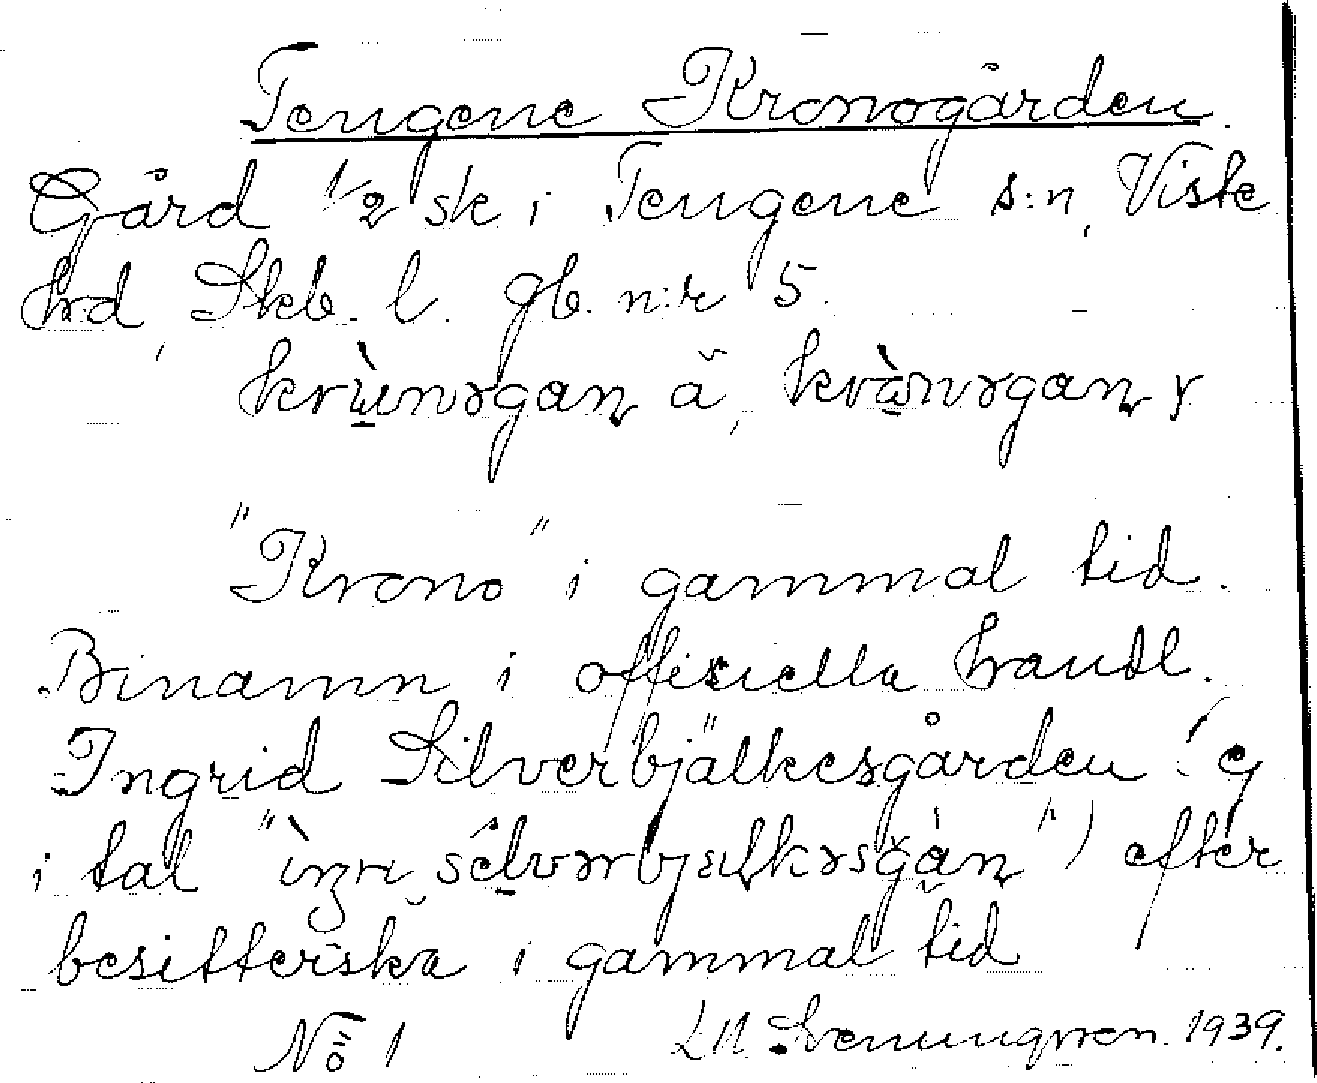 Tengene Kronogården
Gård 1/2 sk i Tengene s:n, Viste
hrd, Skb. l. gb. n:r 5.
krùnəgan ä, kròn̄əgan y
"Krono" i gammal tid.
Binamn i officiella handl.
Ingrid Silverbjälkesgården (ej
i tal "ìŋri sèlvərbjælkəsgàn") efter
besitterska i gammal tid
No 1 Svenungsson. 1939.